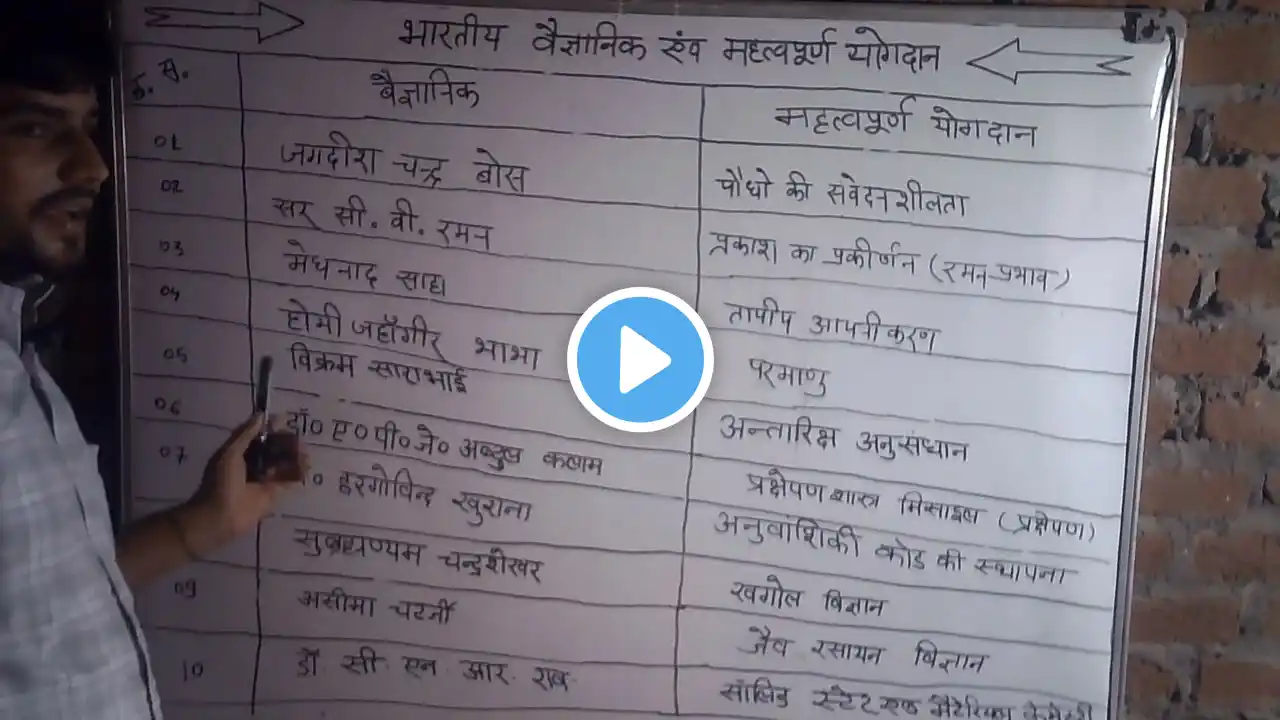 भारतीय वैज्ञानिक एंव महत्वपूर्ण योगदान
क्र. स. वैज्ञानिक महत्वपूर्ण योगदान
01 जगदीश चन्द्र बोस पौधो की संवेदनशीलता
02 सर सी. वी. रमन प्रकाश का प्रकीर्णन (रमन-प्रभाव)
03 मेघनाद साहा तापीय आयनीकरण
04 होमी जहाँगीर भाभा परमाणु
05 विक्रम साराभाई अन्तारिक्ष अनुसंधान
06 डॉ० ए० पी० जे० अब्दुल कलाम प्रक्षेपण शास्त्र मिसाइल (प्रक्षेपण)
07 हरगोविन्द खुराना अनुवांशिकी कोड की स्थापना
सुब्रह्मण्यम चन्द्रशेखर खगोल विज्ञान
09 असीमा चटर्जी जैव रसायन विज्ञान
10 डॉ सी. एन. आर. राव सॉलिड स्टेट एण्ड मैटेरियल